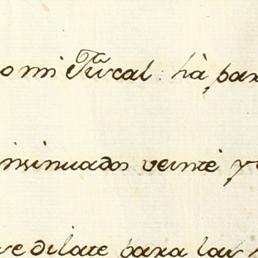 o mi Fiscal: há par
insinuados veinte y
se dilate para las